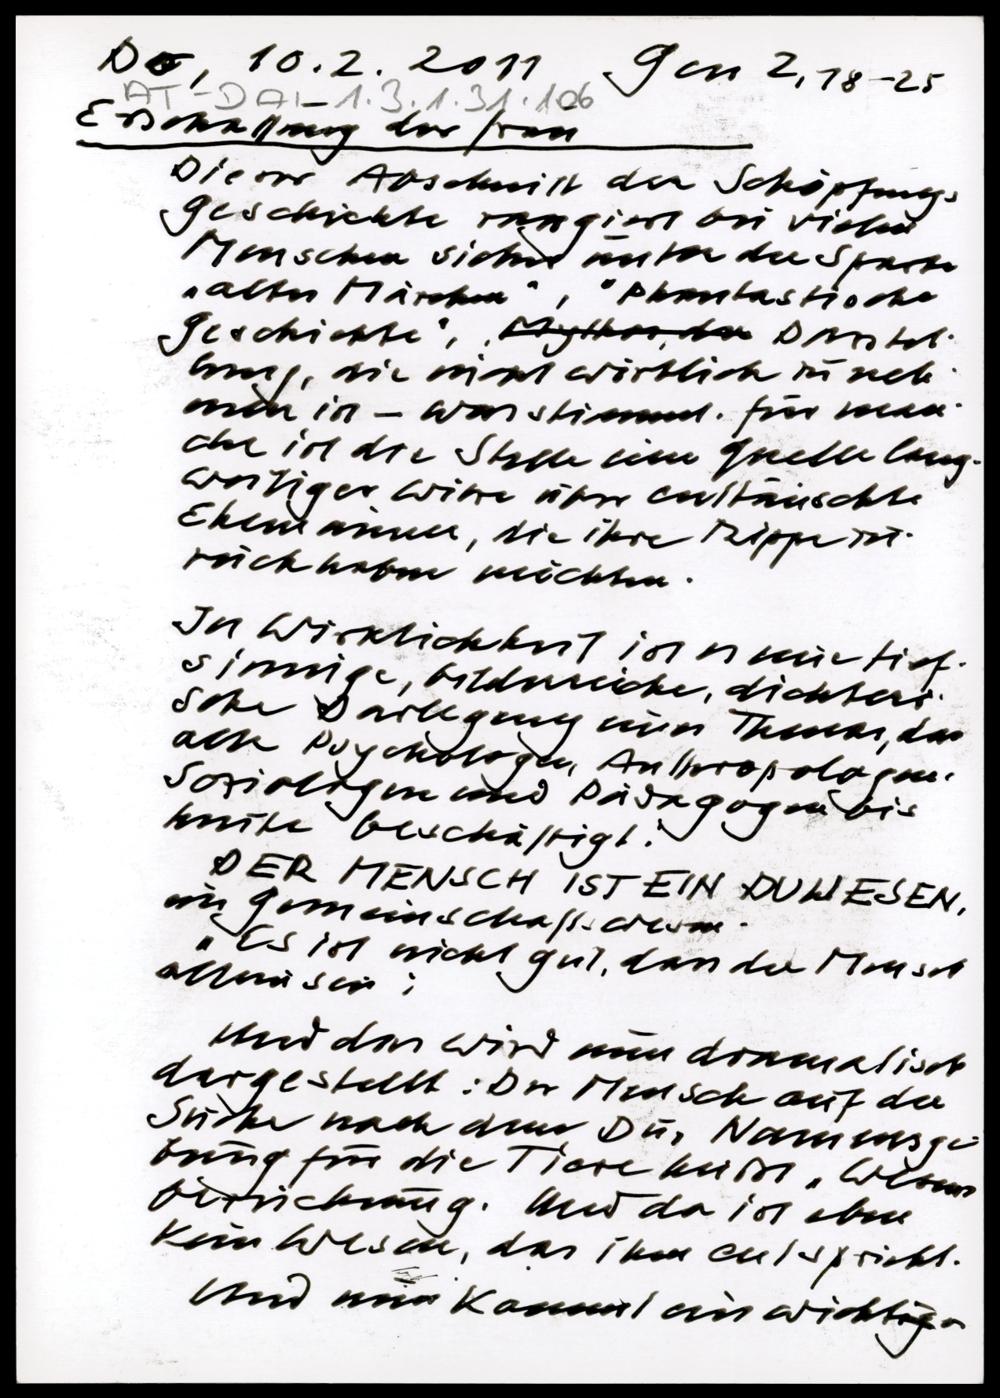 Do, 10.2.2011 Gen 2,18-25
AT-DAI-1.3.1.31.106
Erschaffung der Frau
Dieser Abschnitt der Schöpfungs
geschichte rangiert bei vielen
Menschen sicher unter der Sparte
„alter Märchen", "Phantastische
Geschichte", Mythos, der Darstel-
lung, die nicht wirklich zu neh-
men ist – was stimmt. Für man-
che ist die Stelle eine Quelle lang-
weiliger Witze über enttäuschte
Ehemänner, die ihre Rippe zu-
rückhaben möchten.
In Wirklichkeit ist es eine tief-
sinnige, bilderreiche, dichteri-
sche Darlegung eines Themas, das
alle Psychologen, Anthropologen,
Soziologen und Pädagogen bis
heute beschäftigt:
DER MENSCH IST EIN DUWESEN,
ein Gemeinschaftswesen.
"Es ist nicht gut, dass der Mensch
allein sei";
Und das wird nun dramatisch
dargestellt: Der Mensch auf der
Suche nach dem Du, Namensge-
bung für die Tiere heißt „Wesens
Und da ist eben
kein Wesen, das ihm entspricht.
Und nun kommt ein wichtiger